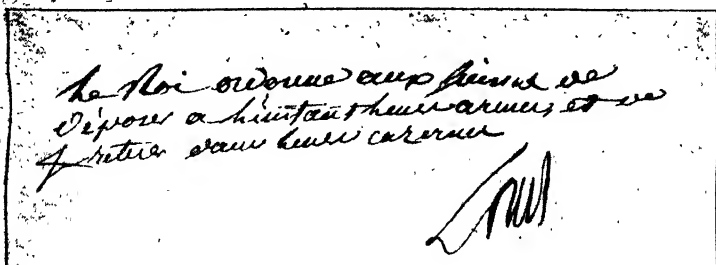 Le Roi ordonne aux Suisses de
déposer a linstant leurs armes, et de
se retirer dans leurs cazernes
Louis